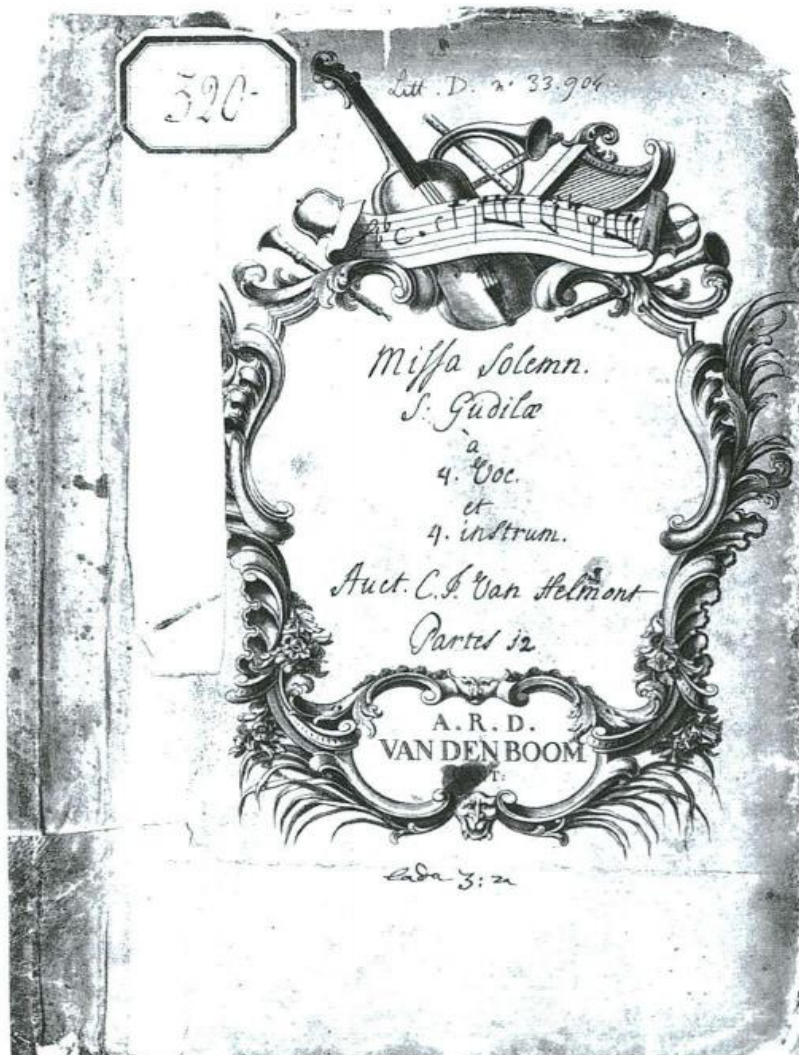 520-
Litt. D. n° 33.904
Missa Solemn.
S: Gudilæ
à
4. Voc.
et
4. instrum.
Auct. C.J. Van Helmont
Partes 12
A. R. D.
VAN DEN BOOM